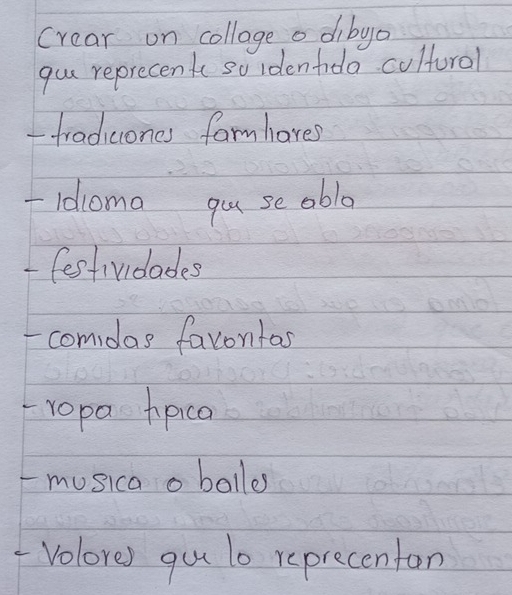 Crear un collage o dibujo
que reprecente su identida cultural
- tradiciones familiares
- Idioma que se abla
- festividades
- comidas favoritas
- ropa tipica
- musica o bailes
- Valores que lo reprecentan